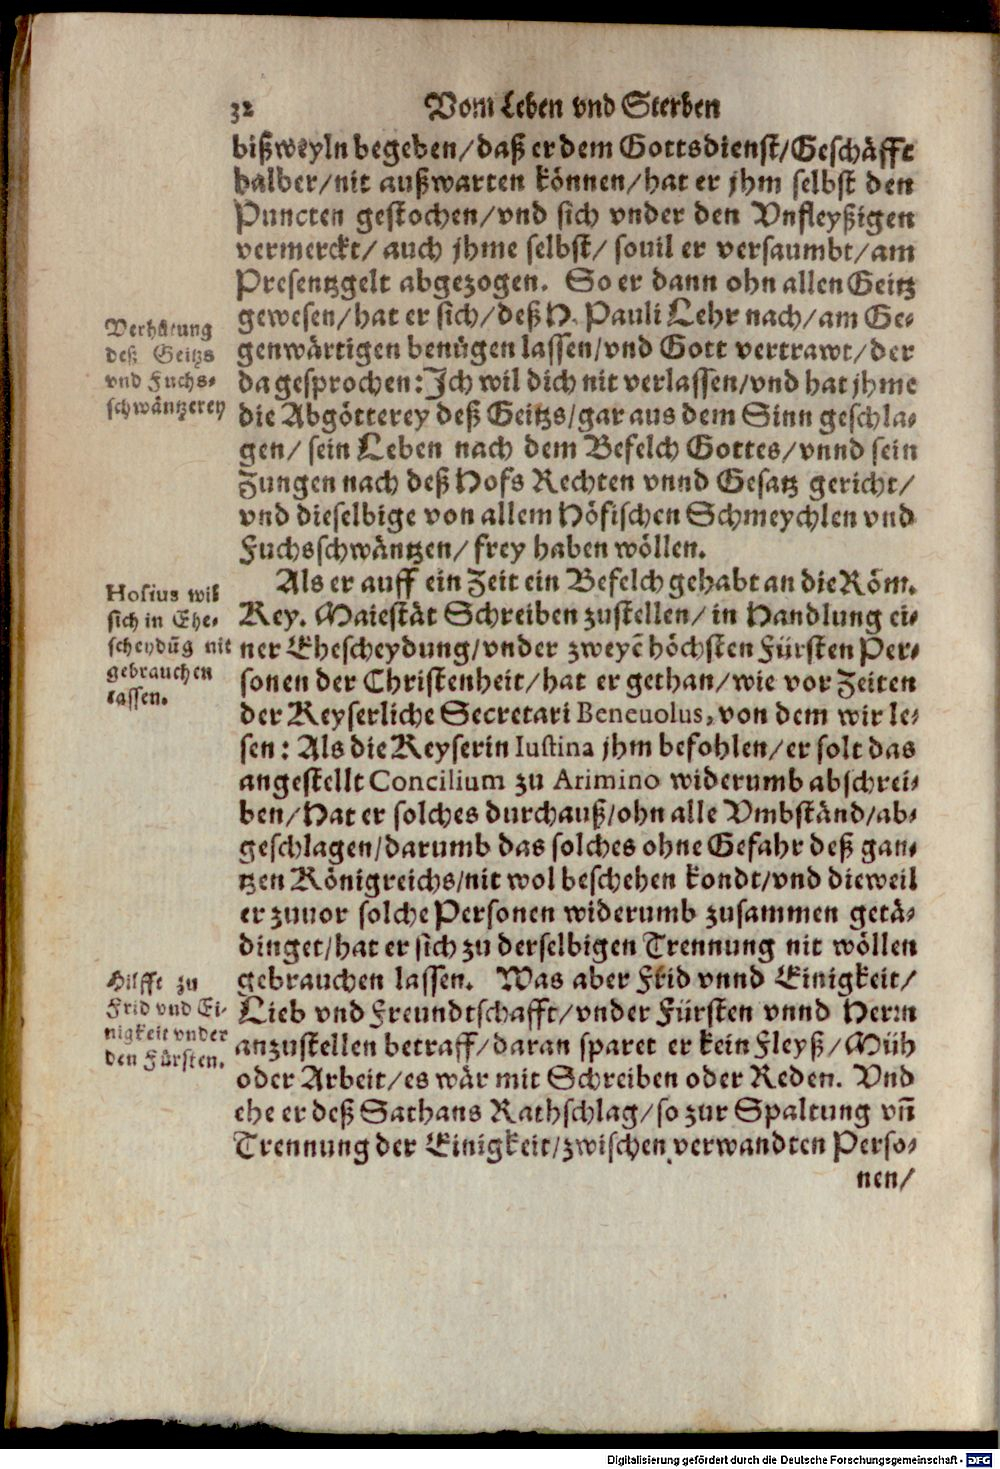 32 Vom Leben vnd Sterben
bißweyln begeben/daß er dem Gottsdienst/Geschäfft
halber/nit außwarten können/hat er jhm selbst den
Puncten gestochen/vnd sich vnder den Vnfleyßigen
vermerckt/ auch jhme selbst/ souil er versaumbt/am
Presentzgelt abgezogen. So er dann ohn allen Geitz
gewesen/hat er sich/deß H. Pauli Lehr nach/am Ge-
genwärtigen benügen lassen/vnd Gott vertrawt/der
da gesprochen: Jch wil dich nit verlassen/vnd hat jhme
die Abgötterey deß Geitzs/gar aus dem Sinn geschla-
gen/ sein Leben nach dem Befelch Gottes/vnnd sein
Zungen nach deß Hofs Rechten vnnd Gesatz gericht/
vnd dieselbige von allem Höfischen Schmeychlen vnd
Fuchsschwäntzen/ frey haben wöllen.
Verhütung
deß Geitzs
vnd Fuchs-
schwäntzerey
Als er auff ein Zeit ein Befelch gehabt an die Röm.
Key. Maiestät Schreiben zustellen/ in Handlung ei-
ner Ehescheydung/vnder zweyē höchsten Fürsten Per-
sonen der Christenheit/hat er gethan/wie vor Zeiten
der Keyserliche Secretari Beneuolus, von dem wir le-
sen: Als die Keyserin Iustina jhm befohlen/er solt das
angestellt Concilium zu Arimino widerumb abschrei-
ben/Hat er solches durchauß/ohn alle Vmbständ/ab-
geschlagen/darumb das solches ohne Gefahr deß gan-
tzen Königreichs/nit wol beschehen kondt/vnd dieweil
er zuuor solche Personen widerumb zusammen getä-
dinget/hat er sich zu derselbigen Trennung nit wöllen
gebrauchen lassen. Was aber Frid vnnd Einigkeit/
Lieb vnd Freundtschafft/vnder Fürsten vnnd Herrn
anzustellen betraff/daran sparet er kein Fleyß/Müh
oder Arbeit/es wär mit Schreiben oder Reden. Vnd
ehe er deß Sathans Rathschlag/so zur Spaltung vñ
Trennung der Einigkeit/zwischen verwandten Perso-
nen/
Hosius wil
sich in Ehe-
scheydūg nit
gebrauchen
lassen.
Hilfft zu
Frid vnd Ei-
nigkeit vnder
den Fürsten.
Digitalisierung gefördert durch die Deutsche Forschungsgemeinschaft - DFG